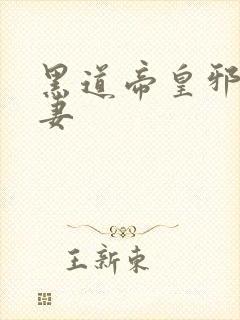 黑道帝皇邪
妻
王新东